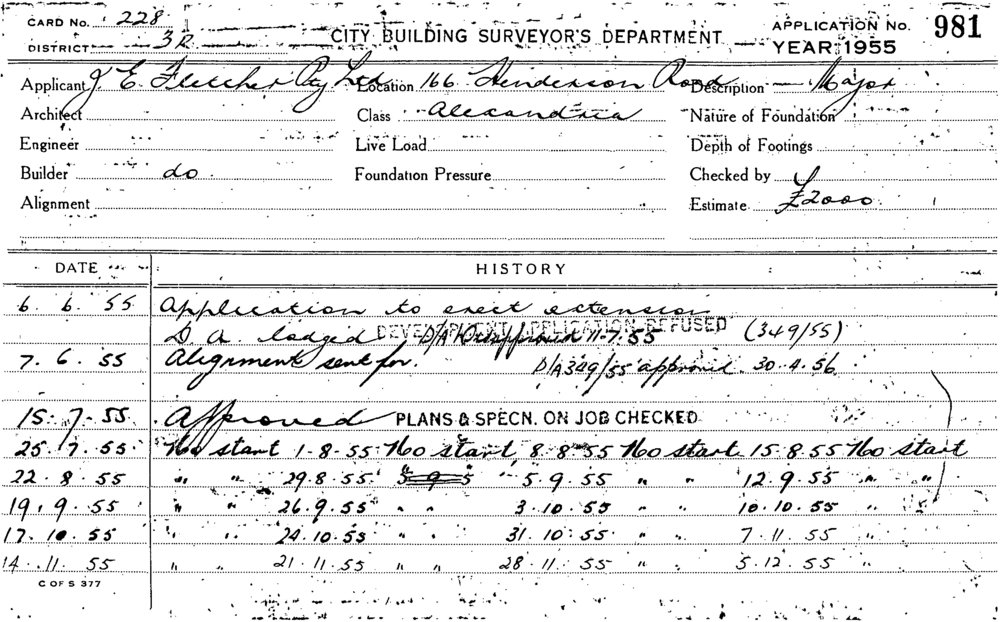 CARD No. 228 CITY BUILDING SURVEYOR'S DEPARTMENT APPLICATION No. 981
DISTRICT 3R YEAR 1955
Applicant J E Fletcher Pty Ltd Location 166 Henderson Road Description Major
Architect Class Alexandria Nature of Foundation
Engineer Live Load Depth of Footings
Builder do Foundation Pressure Checked by
Alignment Estimate £2000
DATE HISTORY
6. 6. 55 Application to erect extension
D A lodged DEVELOPMENT APPLICATION REFUSED D/A Disapproved 11-7-55 (349/55)
7. 6. 55 Alignment sent for. D/A 349/55 approved 30.4.56
15.7.55 Approved PLANS & SPECN. ON JOB CHECKED
25.7.55 No start 1.8.55 No start 8.8.55 No start 15.8.55 No start
22.8.55 " " 29.8.55 " " 5.9.55 " " 12.9.55 " "
19.9.55 " " 26.9.55 " " 3.10.55 " " 10.10.55 " "
17.10.55 " " 24.10.55 " " 31.10.55 " " 7.11.55 " "
14.11.55 " " 21.11.55 " " 28.11.55 " " 5.12.55 " "
C OF S 377